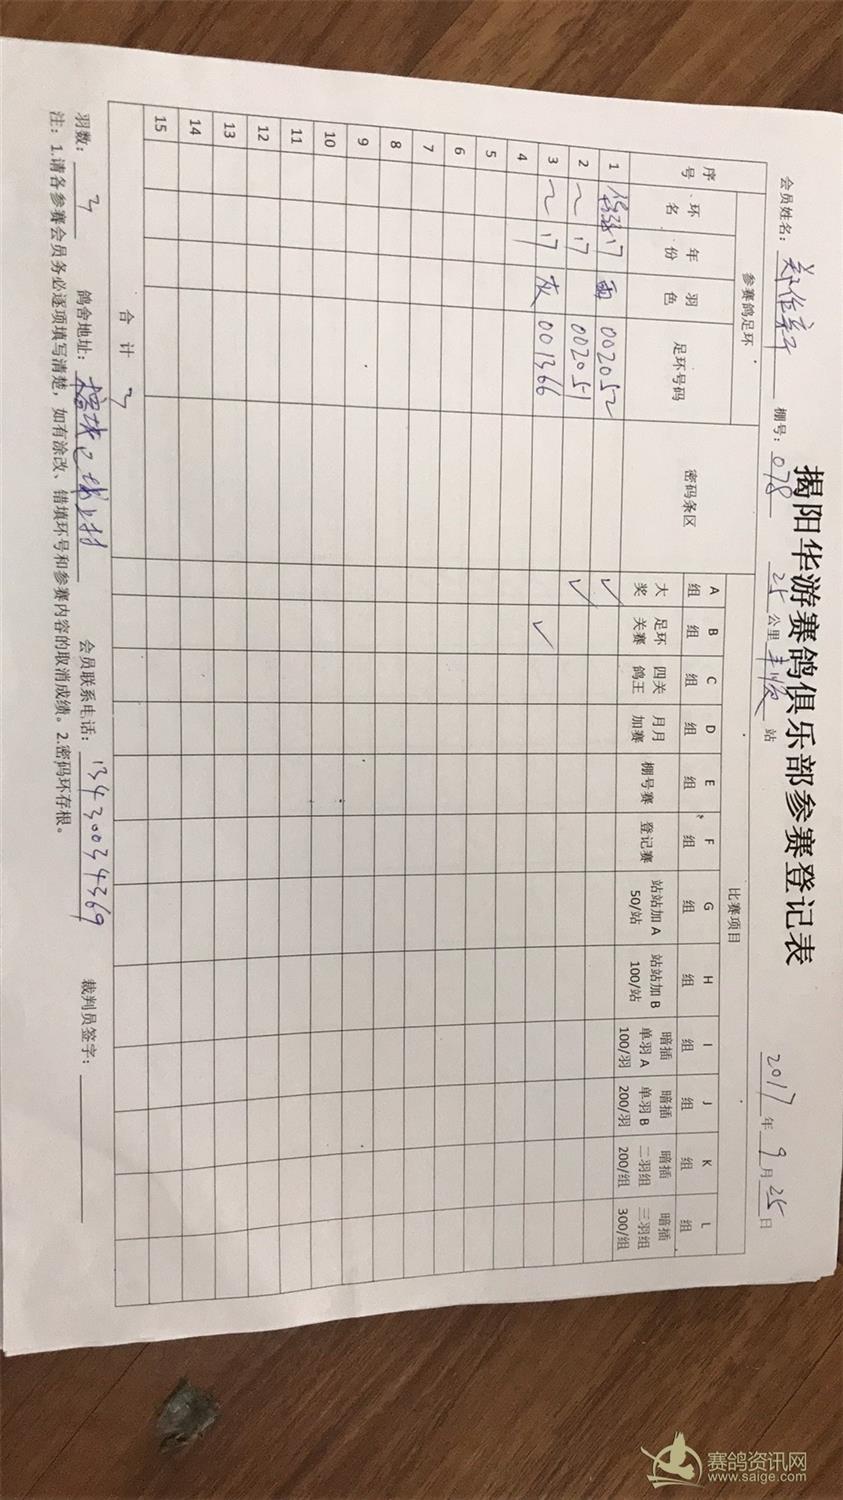 揭阳华游赛鸽俱乐部参赛登记表
会员姓名: 棚号: 078 25 公里 丰顺 站 2017 年 9 月 25 日
序号 参赛鸽足环 密码条区 比赛项目
环名 年份 羽色 足环号码 A组 B组 C组 D组 E组 F组 G组 H组 I组 J组 K组 L组
大奖 足环关赛 四关鸽王 月月加赛 棚号赛 登记赛 站站加A 50/站 站站加B 100/站 暗插单羽A 100/羽 暗插单羽B 200/羽 暗插二羽组 200/组 暗插三羽组 300/组
1 17 雨 002052 ✓
2 ~ 17 002051 ✓
3 ~ 17 灰 001366 ✓
4
5
6
7
8
9
10
11
12
13
14
15
合计 3
羽数: 3 鸽舍地址: 会员联系电话: 13430034369 裁判员签字:
注: 1.请各参赛会员务必逐项填写清楚, 如有涂改、错填环号和参赛内容的取消成绩。2.密码环存根。
赛鸽资讯网
www.saige.com